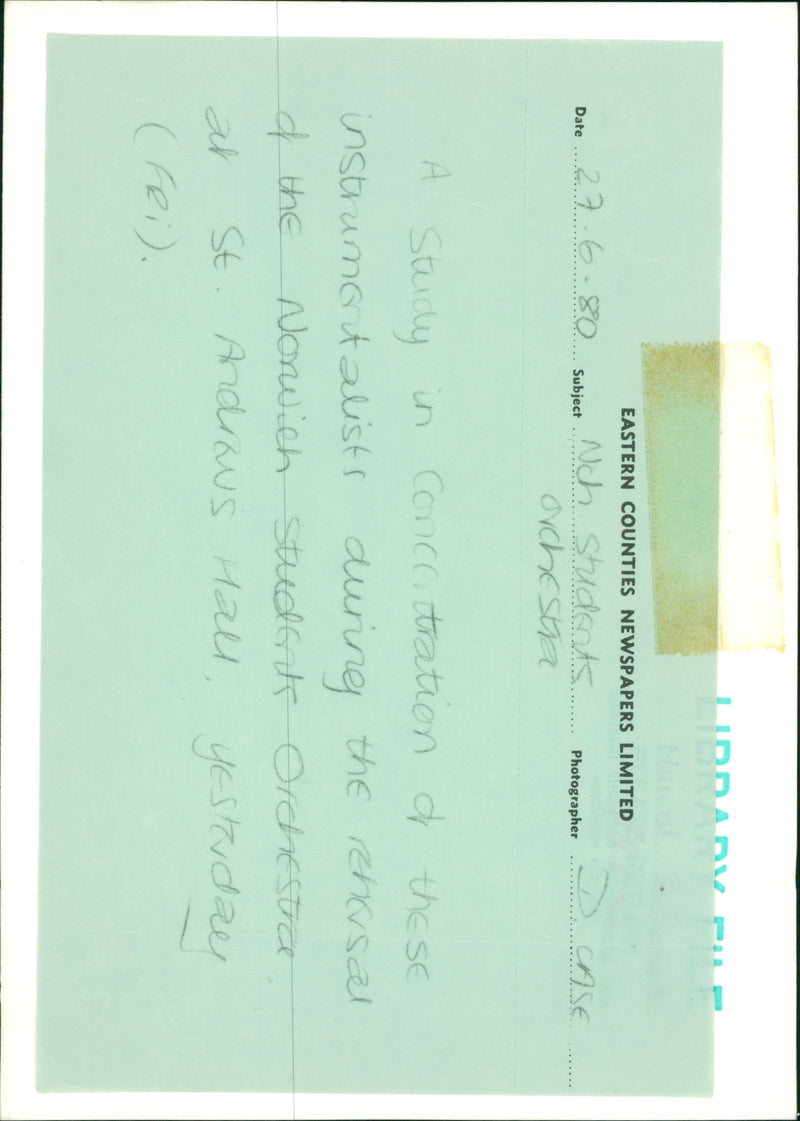 LIBRARY FILE
EASTERN COUNTIES NEWSPAPERS LIMITED
Date 27.6.80 Subject Nch Students Photographer D CASE
Orchestra
A Study in Concentration of these
instrumentalists during the rehersal
of the Norwich Students Orchestra
at St. Andrews Hall, yesterday
(FRi).